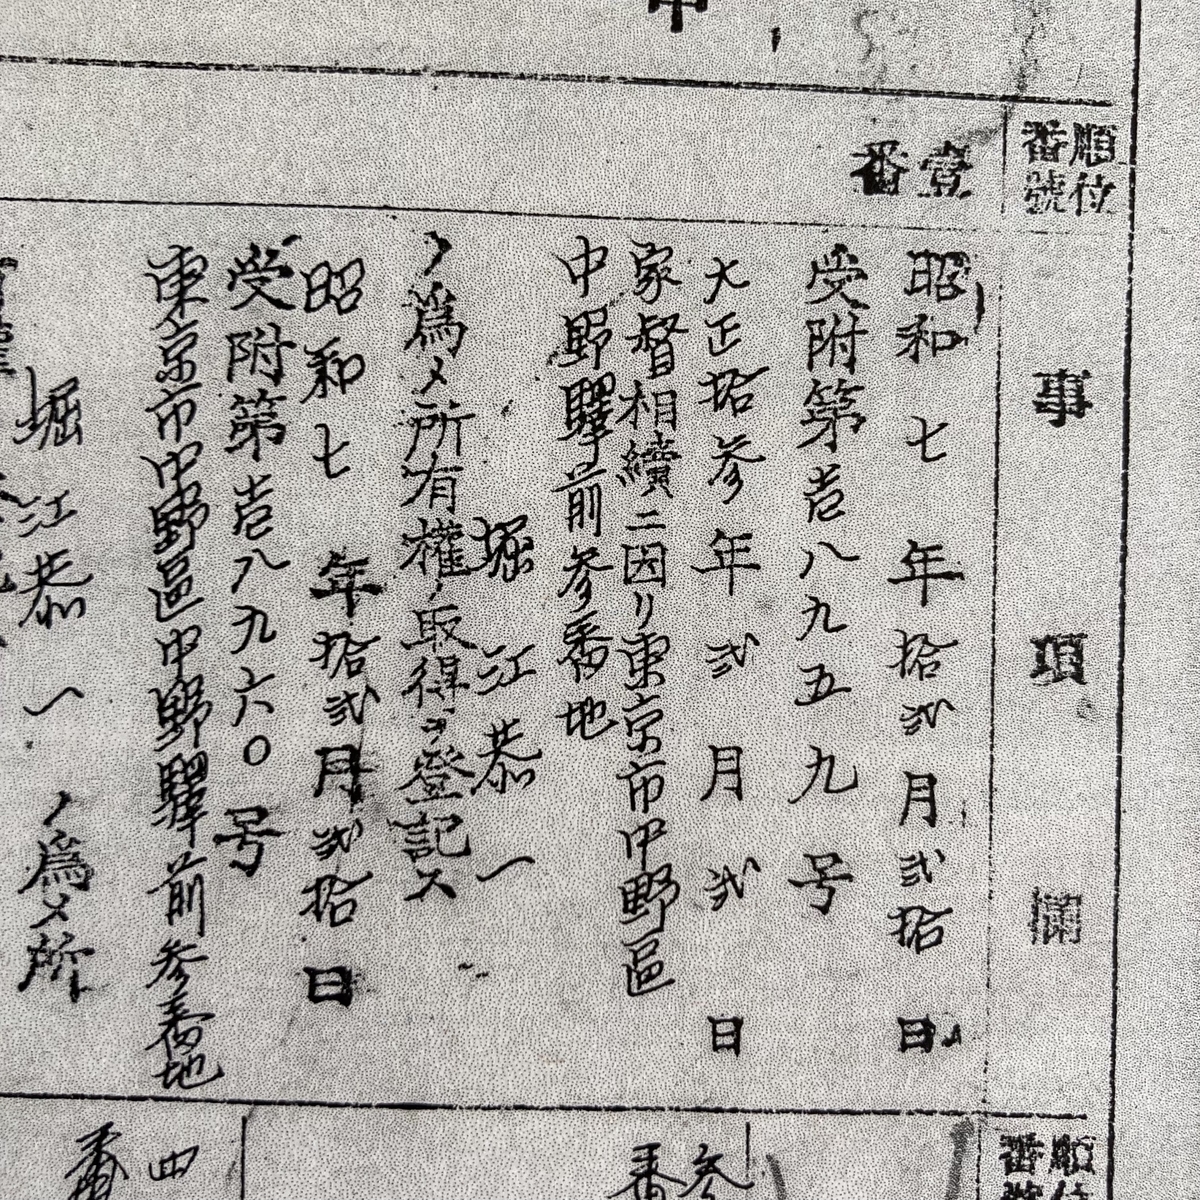 順位番號
事項欄
壹番
昭和七年拾弐月弐拾日
受附第壱八九五九号
大正拾参年弐月弐日
家督相續ニ因リ東京市中野區
中野驛前参番地
堀江恭一
ノ為メ所有權ノ取得ヲ登記ス
昭和七年拾弐月弐拾日
受附第壱八九六〇号
東京市中野區中野驛前参番地
堀江恭一ノ為メ所
順位番
参番
四番